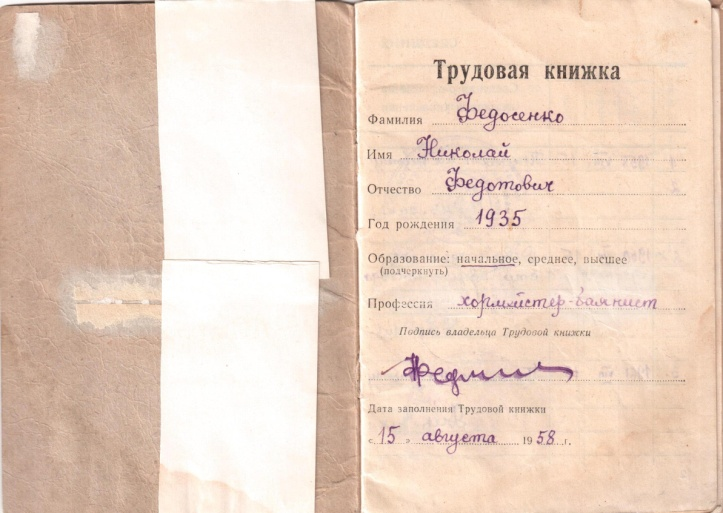 Трудовая книжка
Фамилия Федосенко
Имя Николай
Отчество Федотович
Год рождения 1935
Образование: начальное, среднее, высшее
(подчеркнуть)
Профессия хормейстер-баянист
Подпись владельца Трудовой книжки
Дата заполнения Трудовой книжки
«15» августа 1958 г.